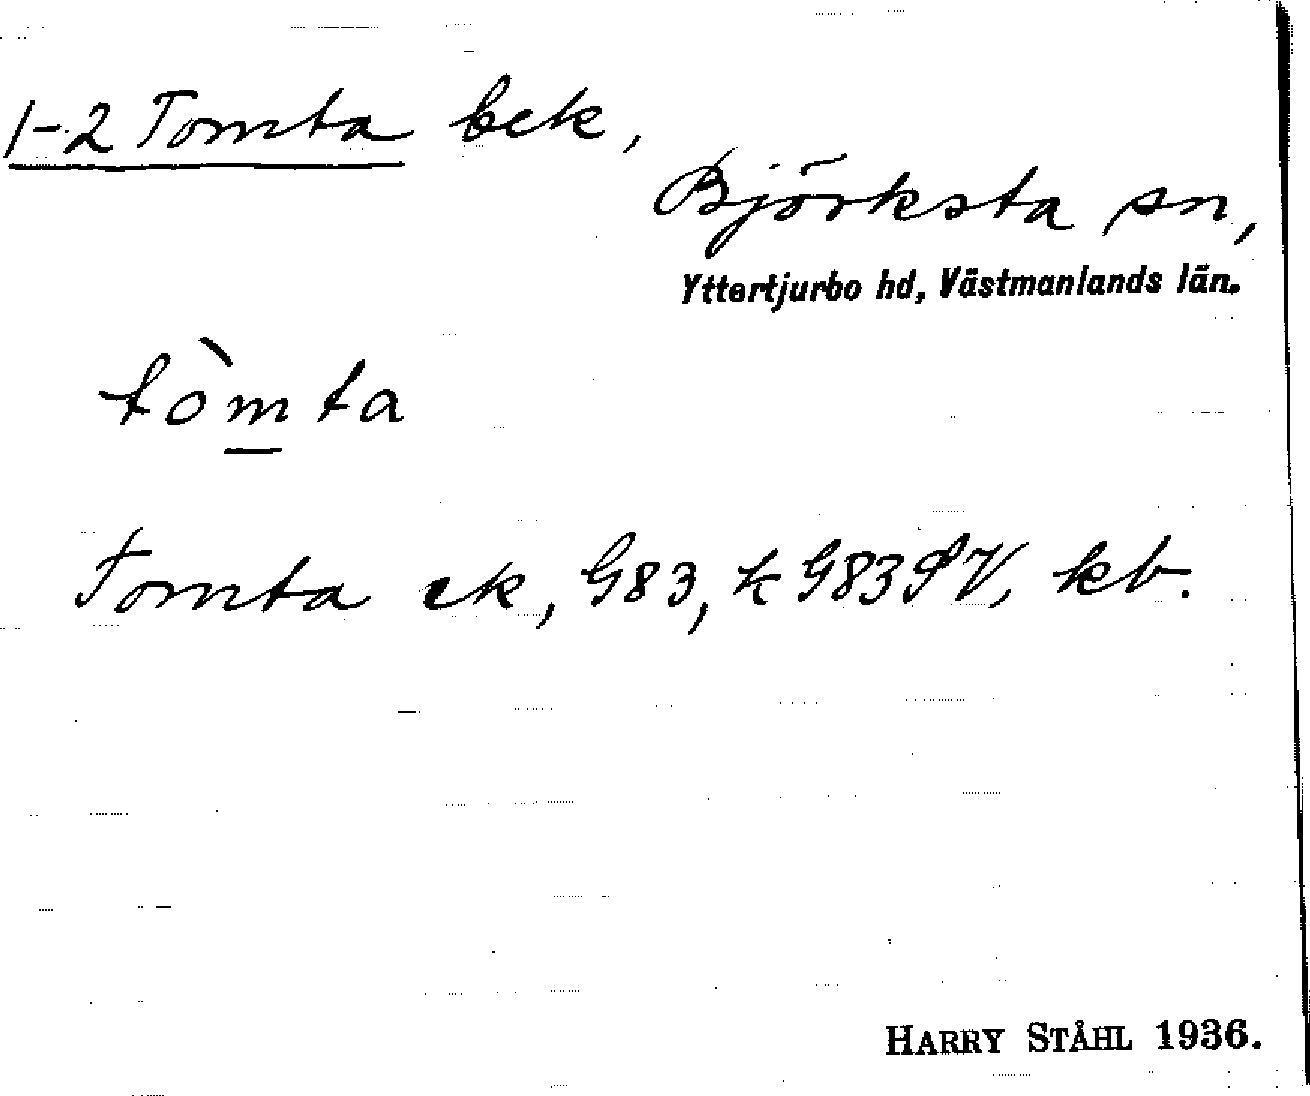 1-2 Tomta bek,
Björksta sn,
Yttertjurbo hd, Västmanlands län.
tòmta
Tomta ek, G83, k G83 SV, kb.
HARRY STÅHL 1936.